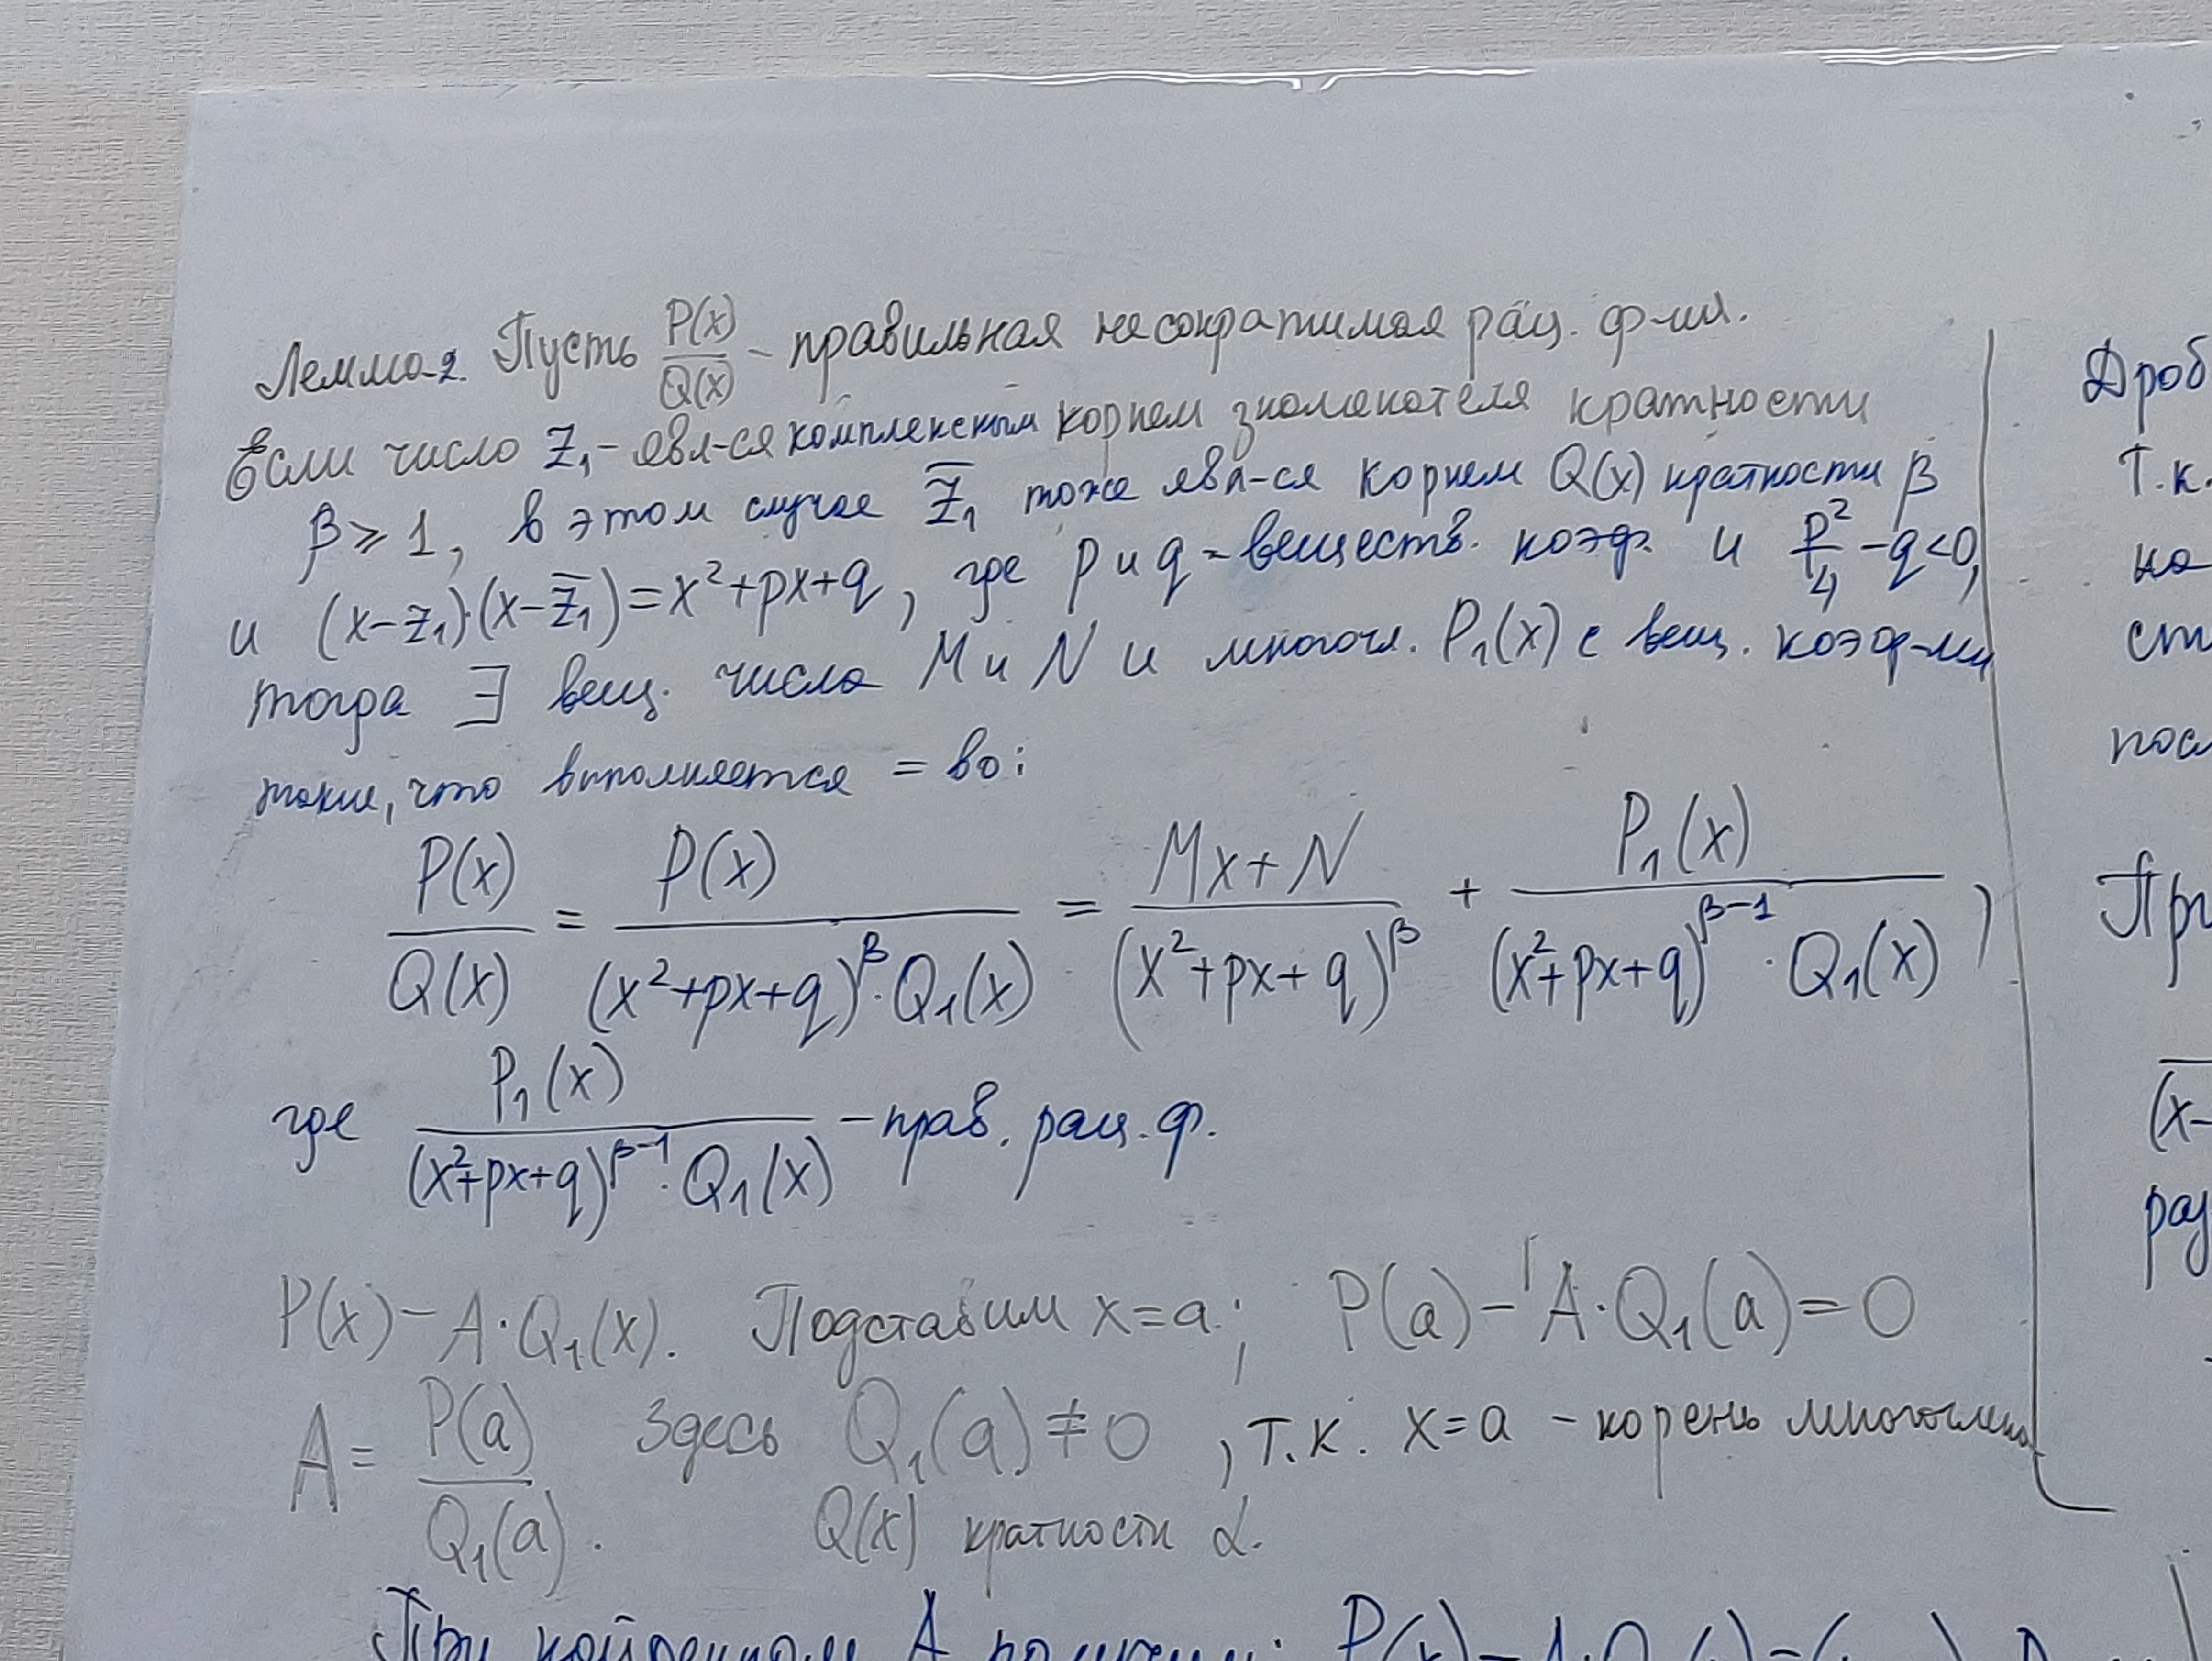 Лемма 2. Пусть P(x)/Q(x) - правильная несократимая рац. ф-ия.
Если число z₁ - явл-ся комплексным корнем знаменателя кратности
β ⩾ 1, в этом случае z̅₁ тоже явл-ся корнем Q(x) кратности β
и (x-z₁)·(x-z̅₁)=x²+px+q, где p и q - веществ. коэф. и p²/4 - q<0,
тогда ∃ вещ. числа M и N и многочл. P₁(x) с вещ. коэф-ми
такие, что выполняется = во:
P(x)/Q(x) = P(x)/((x²+px+q)^β·Q₁(x)) = (Mx+N)/(x²+px+q)^β + P₁(x)/((x²+px+q)^(β-1)·Q₁(x)),
где P₁(x)/((x²+px+q)^(β-1)·Q₁(x)) - прав. рац. ф.
P(x) - A·Q₁(x). Подставим x=a; P(a) - A·Q₁(a)=0
A = P(a)/Q₁(a). Здесь Q₁(a)≠0, т.к. x=a - корень многочлена
Q(x) кратности α.
При найденном A получим: P(x)-A·Q₁(x)=
Дроб
Т.к.
на
ст
посл
При
(x-
раз